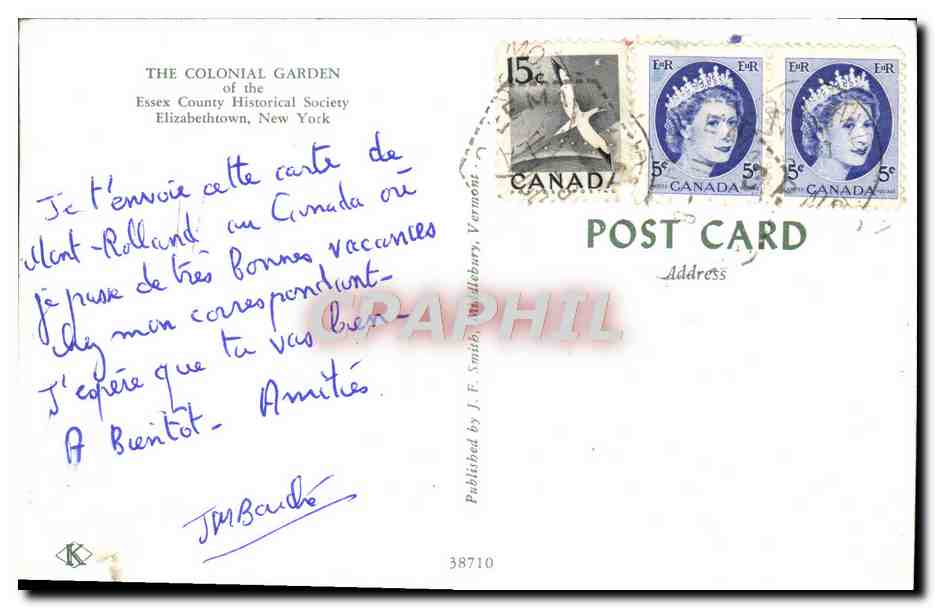 THE COLONIAL GARDEN
of the
Essex County Historical Society
Elizabethtown, New York
Je t'envoie cette carte de
Mont-Rolland au Canada où
je passe de très bonnes vacances
chez mon correspondant-
J'espère que tu vas bien-
A Bientôt- Amitiés.
JMBouché
K
38710
Published by J. F. Smith, Middlebury, Vermont
15c
CANADA
EIIR EIIR
5c 5c
CANADA
POSTES POSTAGE
EIIR EIIR
5c 5c
CANADA
POSTES POSTAGE
POST CARD
Address
CPAPHIL